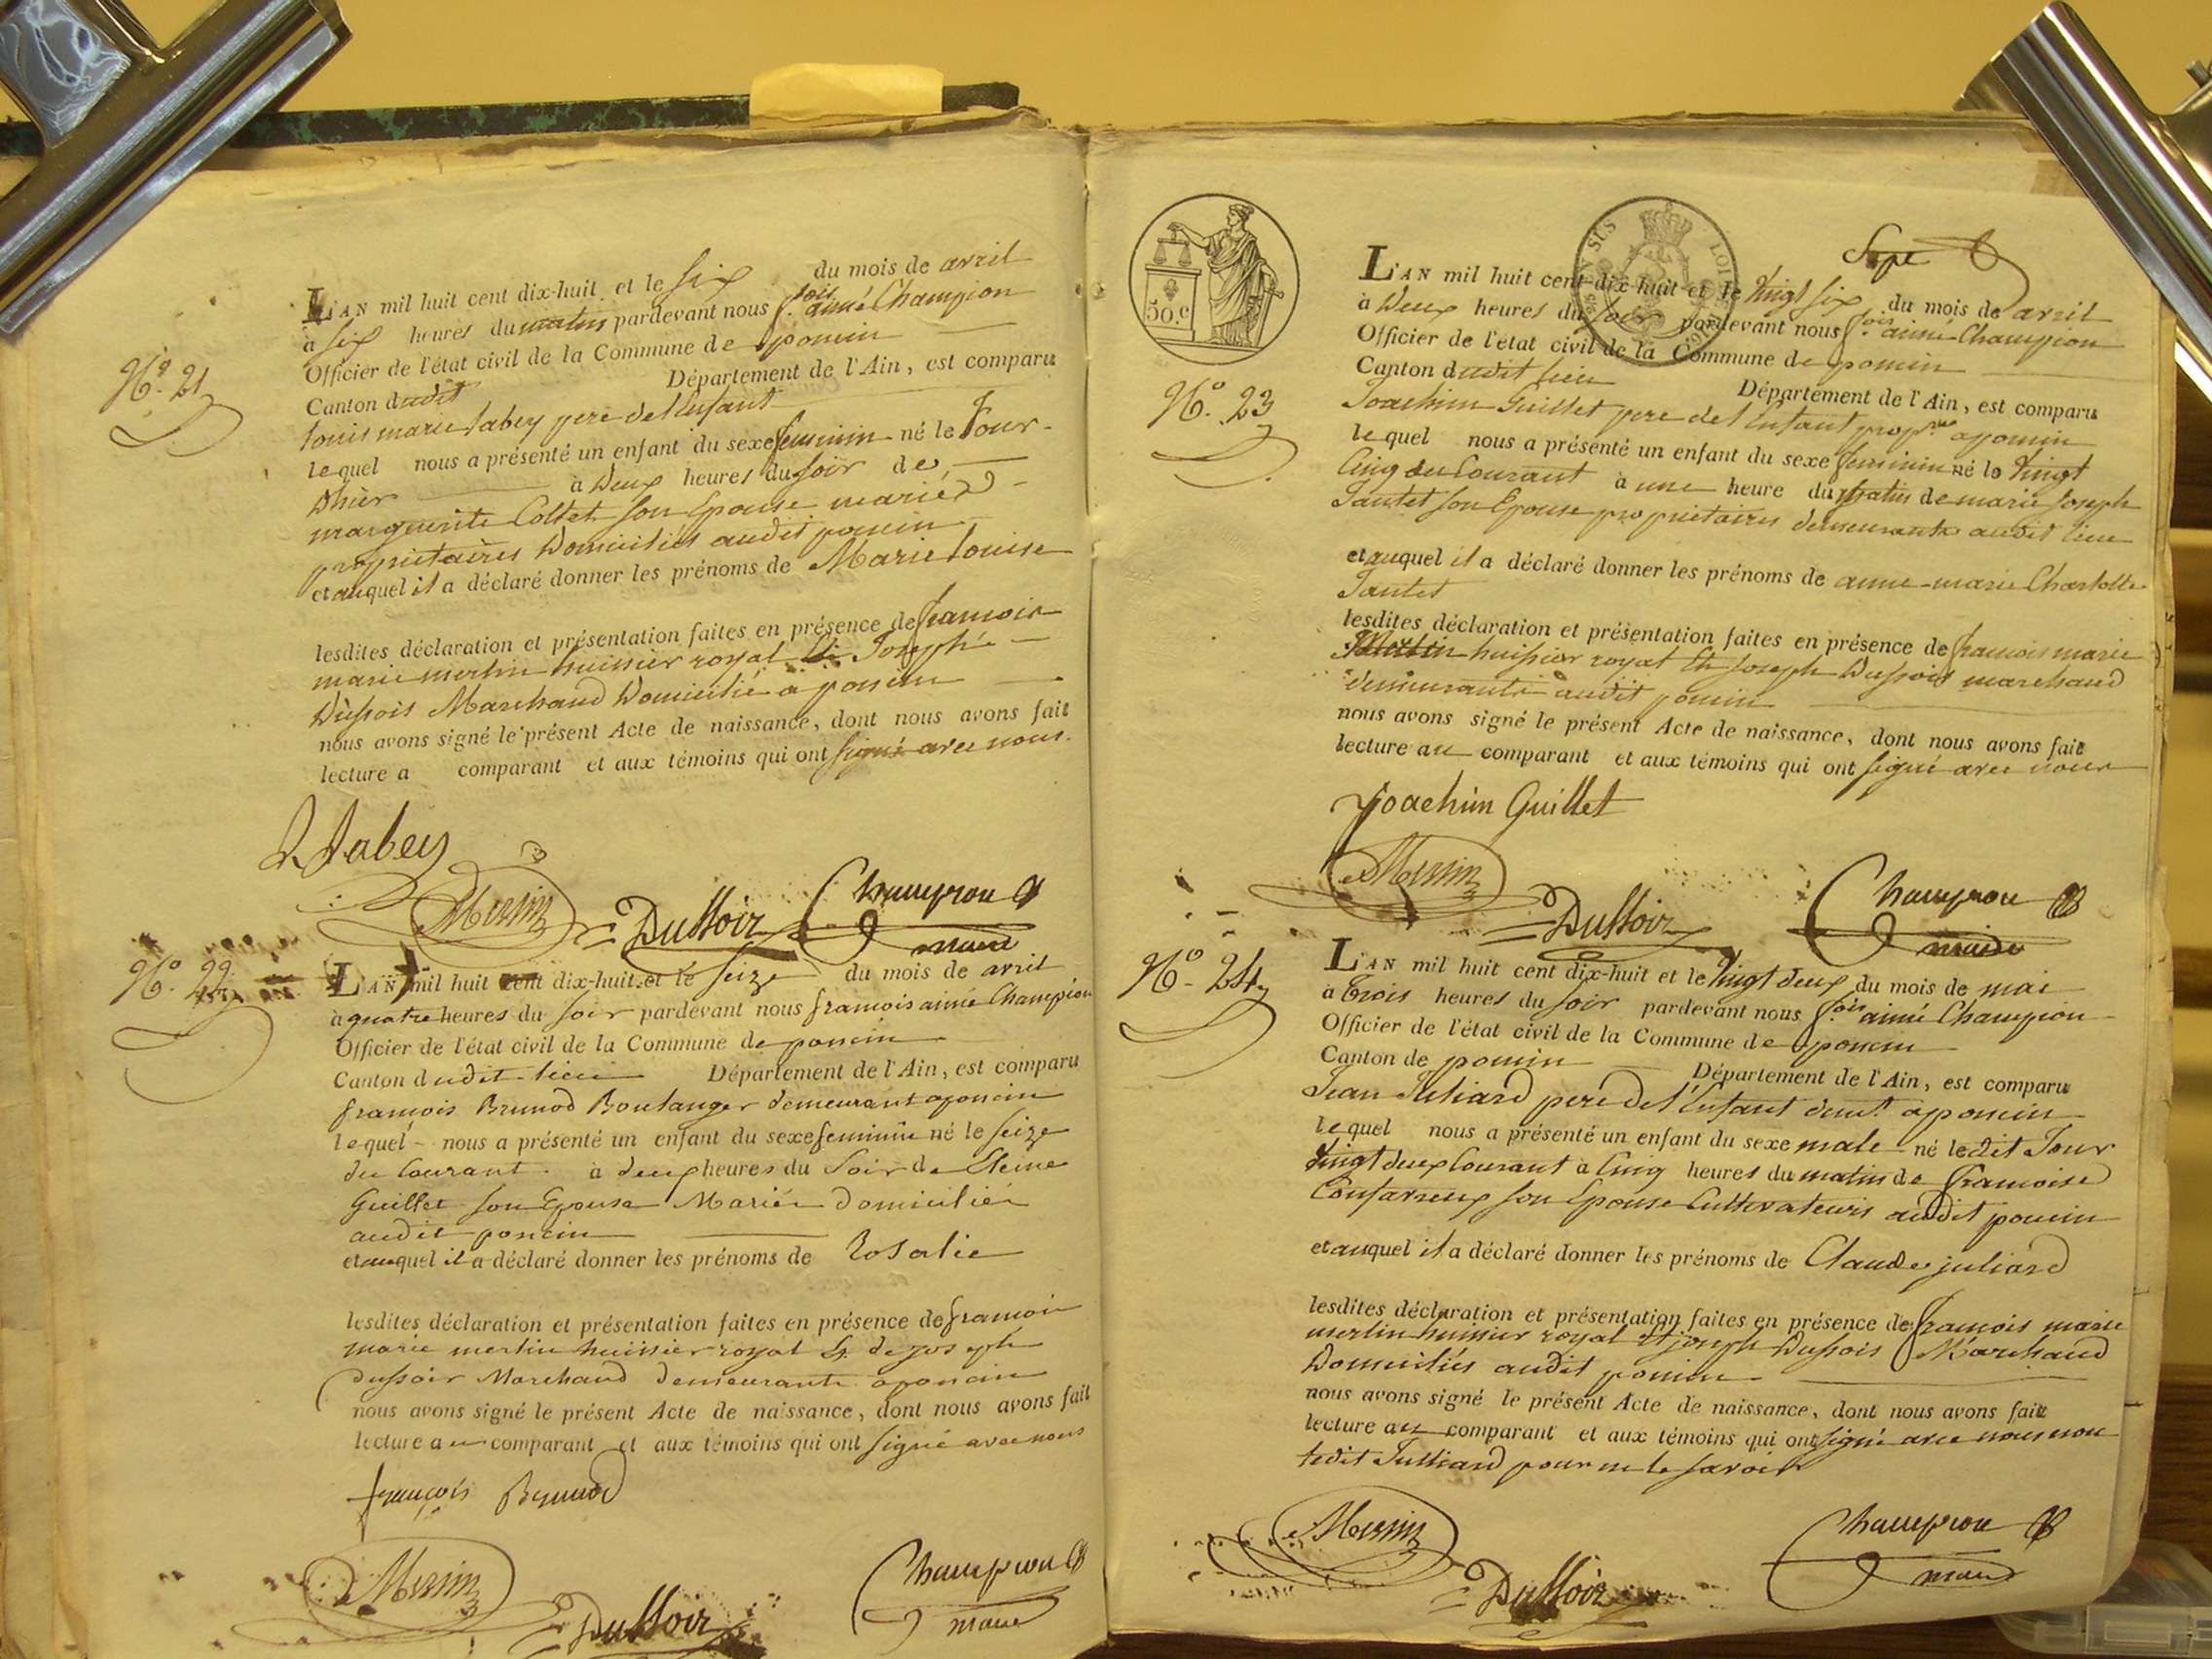 L'AN mil huit cent dix-huit et le six du mois de avril
à six heures du matin pardevant nous f.ois aimé Champion
Officier de l'état civil de la Commune de poncin
Canton dudit Département de l'Ain, est comparu
louis marie Jabey pere de l'Enfant
lequel nous a présenté un enfant du sexe feminin né le Jour
d'hier à deux heures du soir de
marguerite Collet son Epouse mariés
propriétaires Domiciliés audit poncin
et auquel il a déclaré donner les prénoms de Marie louise
lesdites déclaration et présentation faites en présence de francois
marie merlin huissier royal Et Joseph
Dussoir Marchand Domicilié à poncin
nous avons signé le présent Acte de naissance, dont nous avons fait
lecture a comparant et aux témoins qui ont signé avec nous.
N.o 21
Jabey
Merlin Dussoir Champion
maire
N.o 22
L'AN mil huit cent dix-huit et le seize du mois de avril
à quatre heures du soir pardevant nous francois aimé Champion
Officier de l'état civil de la Commune de poncin
Canton dudit lieu Département de l'Ain, est comparu
francois Brunod Boulanger demeurant a poncin
lequel nous a présenté un enfant du sexe feminin né le seize
du Courant à deux heures du Soir de
Guillet son Epouse Mariés domiciliés
audit poncin
et auquel il a déclaré donner les prénoms de Rosalie
lesdites déclaration et présentation faites en présence de francois
marie merlin huissier royal Et de joseph
dussoir Marchand demeurants a poncin
nous avons signé le présent Acte de naissance, dont nous avons fait
lecture au comparant et aux témoins qui ont signé avec nous
françois Brunod
Merlin Dussoir Champion
maire
50.c
N.o 23
L'AN mil huit cent dix-huit et le vingt six du mois de avril
à deux heures du soir pardevant nous f.ois aimé Champion
Officier de l'état civil de la Commune de poncin
Canton dudit lieu Département de l'Ain, est comparu
Joachim Guillet pere de l'Enfant prop.re a poncin
lequel nous a présenté un enfant du sexe feminin né le vingt
Cinq du Courant à une heure du matin de marie Joseph
Tantet son Epouse propriétaires demeurants audit lieu
et auquel il a déclaré donner les prénoms de anne-marie Charlotte
Tantet
lesdites déclaration et présentation faites en présence de francois marie
Merlin huissier royal Et Joseph Dussoir marchand
demeurants audit poncin
nous avons signé le présent Acte de naissance, dont nous avons fait
lecture au comparant et aux témoins qui ont signé avec nous
Joachim Guillet
Merlin Dussoir Champion
maire
N.o 24
L'AN mil huit cent dix-huit et le vingt deux du mois de mai
à trois heures du soir pardevant nous f.ois aimé Champion
Officier de l'état civil de la Commune de poncin
Canton de poncin Département de l'Ain, est comparu
Jean Juliard pere de l'Enfant dem.t a poncin
lequel nous a présenté un enfant du sexe male né le dit Jour
vingt deux Courant à Cinq heures du matin de francoise
son Epouse Cultivateurs audit poncin
et auquel il a déclaré donner les prénoms de Claude juliard
lesdites déclaration et présentation faites en présence de francois marie
merlin huissier royal Et joseph Dussoir Marchand
Domiciliés audit poncin
nous avons signé le présent Acte de naissance, dont nous avons fait
lecture au comparant et aux témoins qui ont signé avec nous non
ledit Julliard pour ne le savoir
Merlin Dussoir Champion
maire